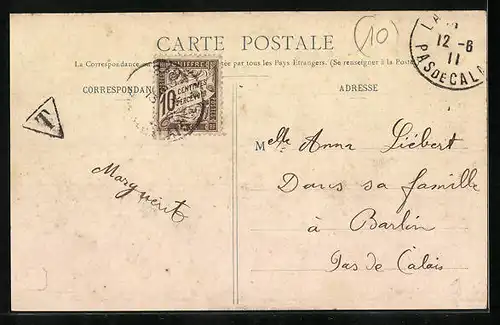 (10)
CARTE POSTALE
La Correspondance par tous les Pays Étrangers. (Se renseigner à la Poste
CORRESPONDANCE
ADRESSE
CHIFFRE
10 CENTIMES
À PERCEVOIR
12 - 6
11
PAS DE CALAIS
T
Melle Anna Liébert
Dans sa famille
à Barlin
Pas de Calais
Marguerit